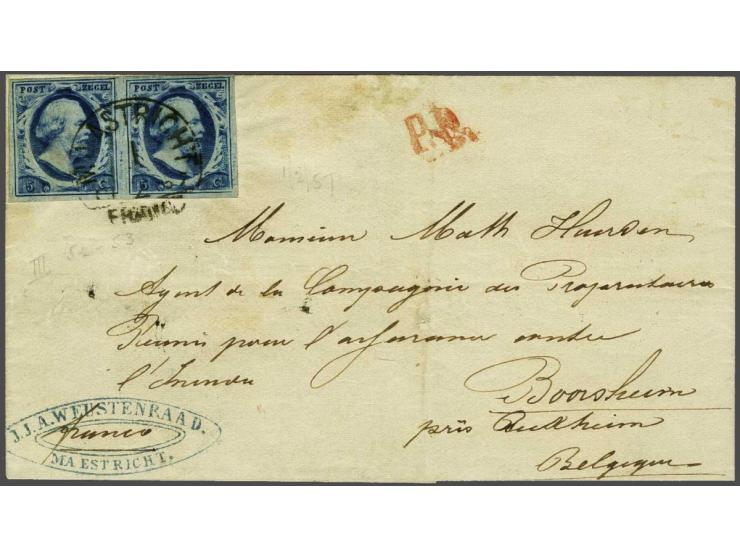 POST ZEGEL POST ZEGEL
5 C. 5 C.
MAASTRICHT
1
2
FRANCO
P.D.
1/2 57
III
Monsieur Math
Agent de la Compagnie des
Réunis pour l'assurance contre
l'Incendie
Boorsheim
près
Belgique
J.J.A. WEUSTENRAAD.
franco
MAESTRICHT.